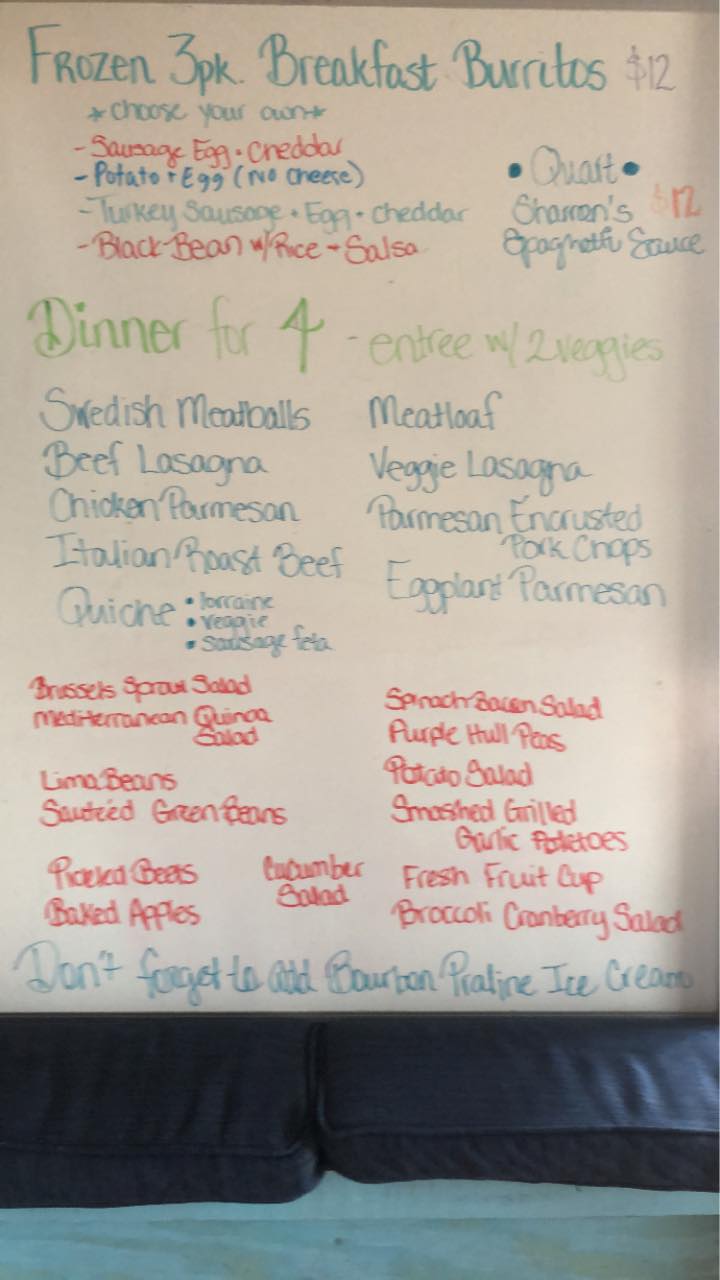 Frozen 3pk. Breakfast Burritos $12
*choose your own*
- Sausage Egg • Cheddar
- Potato + Egg (No Cheese)
- Turkey Sausage • Egg • Cheddar
- Black Bean w/ Rice + Salsa
• Quart •
Sharron's $12
Spaghetti Sauce
Dinner for 4 - entree w/ 2 veggies
Swedish Meatballs
Beef Lasagna
Chicken Parmesan
Italian Roast Beef
Quiche • lorraine
• veggie
• sausage feta
Meatloaf
Veggie Lasagna
Parmesan Encrusted
Pork Chops
Eggplant Parmesan
Brussels Sprout Salad
Mediterranean Quinoa
Salad
Lima Beans
Sauteéd Green Beans
Pickled Beets
Baked Apples
Cucumber
Salad
Spinach Bacon Salad
Purple Hull Peas
Potato Salad
Smashed Grilled
Garlic Potatoes
Fresh Fruit Cup
Broccoli Cranberry Salad
Don't forget to add Bourbon Praline Ice Cream